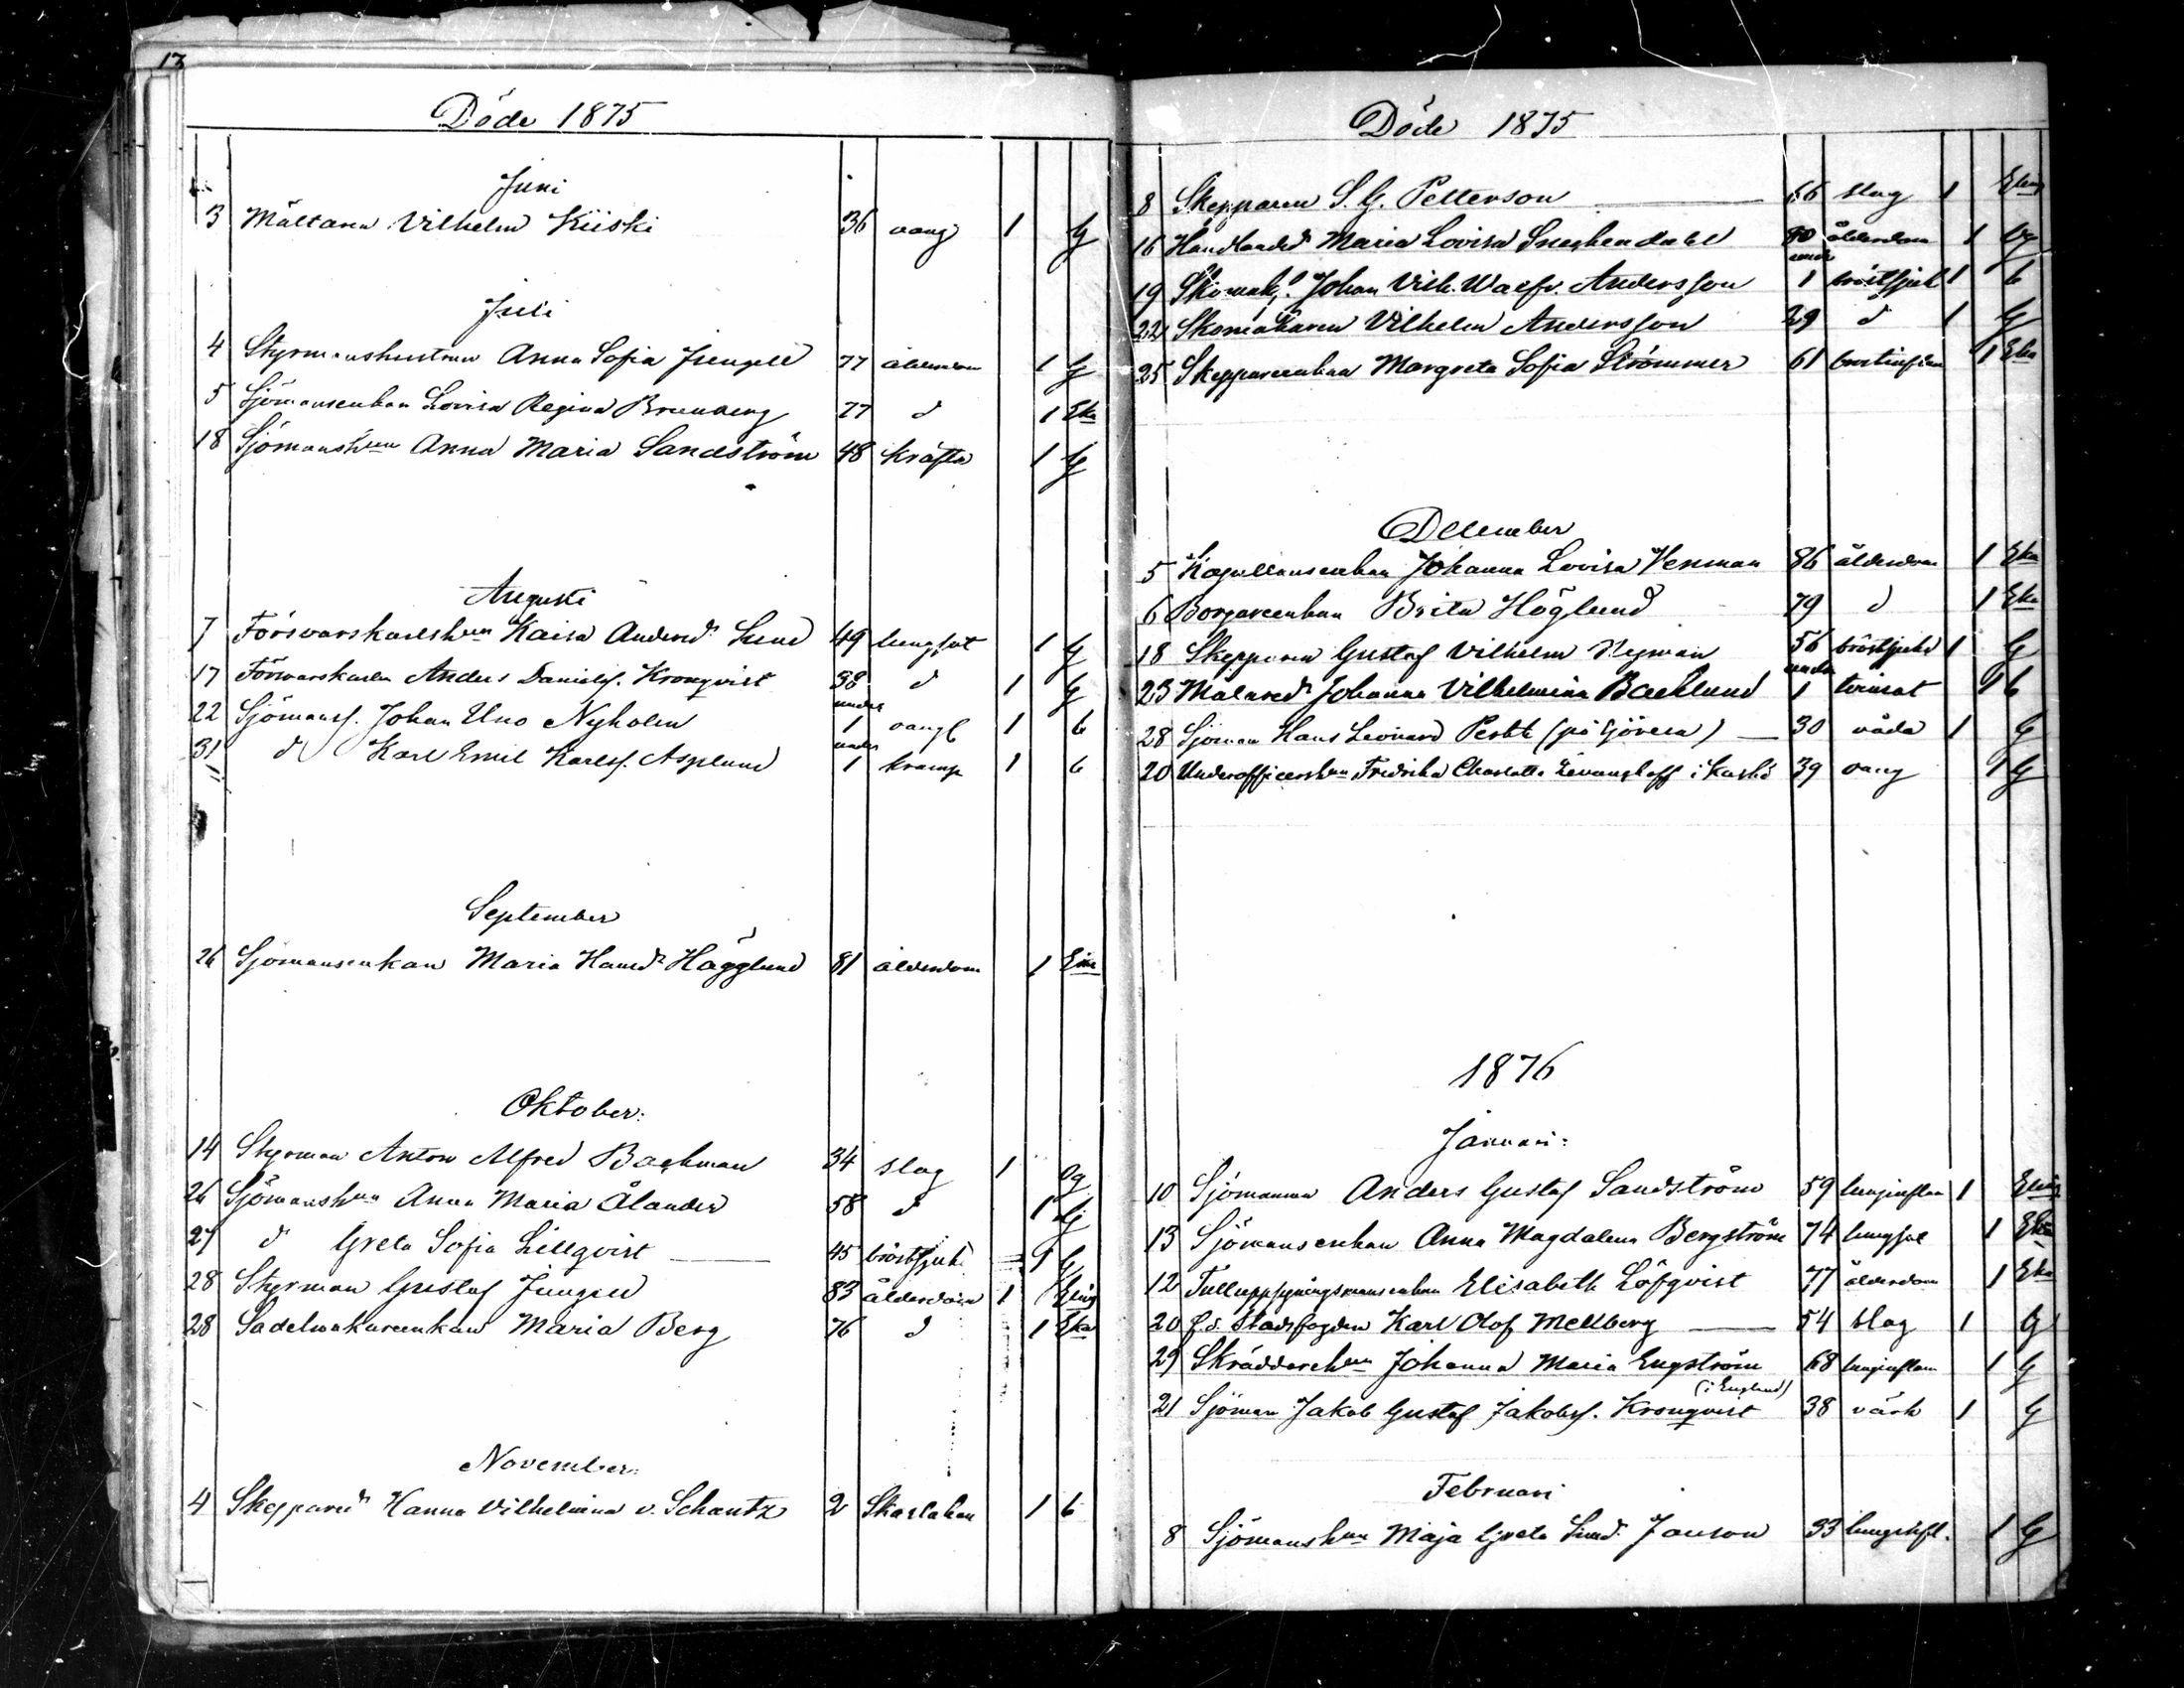 13
Döde 1875
Juni
3 Mältaren Vilhelm Kiiski 36 oang 1 G
Juli
4 Styrmanshustrun Anna Sofia Jungell 77 ålderdom 1 G
5 Sjömansenkan Lovisa Regina Brunberg 77 d 1 Eka
18 Sjömanshun Anna Maria Sandström 48 kräfta 1 G
Augusti
7 Försvarskarlshun Kaisa Andersdr Lund 49 lungsot 1 G
17 Försvarskarlen Anders Danielsf. Kronqvist 38 d 1 G
22 Sjömansf. Johan Uno Nyholm under 1 oangf 1 6
31 d Karl Emil Karlsf. Asplund under 1 kramp 1 6
September
26 Sjömansenkan Maria Hansdr Hägglund 81 ålderdom 1 Eka
Oktober:
14 Styrman Anton Alfred Backman 34 slag 1 Og
26 Sjömanshun Anna Maria Ålander 58 d 1 G
27 d Greta Sofia Lillqvist 45 bröstsjukd 1 G
28 Styrman Gustaf Jungell 83 ålderdom 1 Eling
28 Sadelmakareenkan Maria Berg 76 d 1 Eka
November:
4 Skepparedr Hanna Vilhelmina v. Schantz 2 Skarlakan 1 6
Döde 1875
8 Skepparen S. G. Petterson 66 slag 1 Eling
16 Handlandedr Maria Lovisa Sneckendahl 80 ålderdom 1 Og
19 Skomak.s. Johan Vilh. Waefr. Andersson under 1 bröstsjukd 1 6
22 Skomakaren Vilhelm Andersson 29 d 1 G
25 Skeppareenkan Margreta Sofia Strömmer 61 1 Eka
December
5 Kapellansenkan Johanna Lovisa Venman 86 ålderdom 1 Eka
6 Borgareenkan Brita Höglund 79 d 1 Eka
18 Skepparen Gustaf Vilhelm Nyman 56 bröstsjukd 1 G
23 Målaredr Johanna Vilhelmina Backlund under 1 tvinsot 1 6
28 Sjöman Hans Leonard Perth (på sjöresa) 30 våda 1 G
20 Underofficershun Fredrika Charlotta Levanskoff i Kaskö 39 oang 1 G
1876
Januari:
10 Sjömannen Anders Gustaf Sandström 59 lunginflam 1 Eling
13 Sjömansenkan Anna Magdalena Bergström 74 lungsot 1 Eka
12 Tulluppsyningsmansenkan Elisabeth Löfqvist 77 ålderdom 1 Eka
20 f.d. Stadsfogden Karl Olof Mellberg 54 slag 1 G
29 Skräddarehun Johanna Maria Engström 68 lunginflam 1 G
21 Sjöman Jakob Gustaf Jakobsf. Kronqvist (i England) 38 värk 1 G
Februari
8 Sjömanshun Maja Greta Simdr Janson 33 lunginfl. 1 G